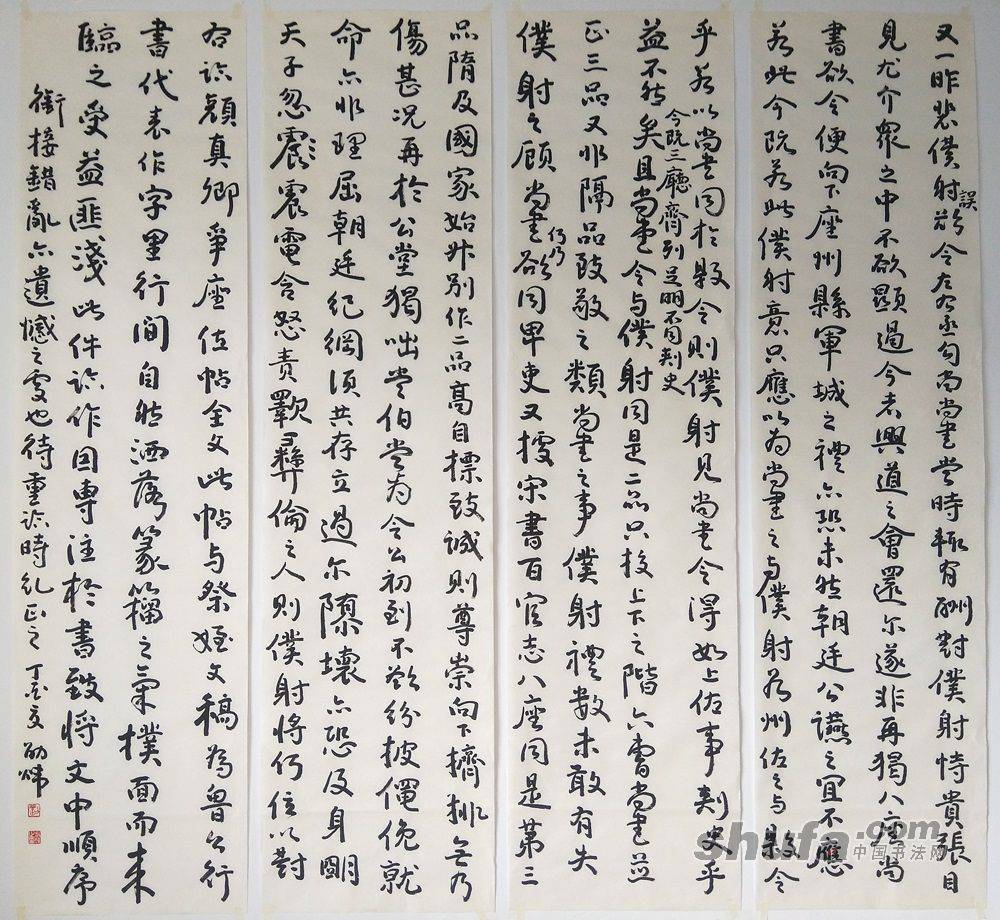 又一昨裴僕射誤欲令左右丞勾尚書當時輒有酬對僕射恃貴張目
見尤介衆之中不欲顯過今者興道之會還爾遂非再獨八座尚
書欲令便向下座州縣軍城之禮亦恐未然朝廷公讌之宜不應
若此今既若此僕射意只應以為尚書之與僕射若州佐之與縣令
乎若以尚書同於縣令則僕射見尚書令得如上佐事刺史乎
益不然矣今既三廳齊列足明不同刺史且尚書令與僕射同是二品只校上下之階六曹尚書並
正三品又非隔品致敬之類尚書之事僕射禮數未敢有失
僕射之顧尚書仍乃欲同卑吏又據宋書百官志八座同是第三
品隋及國家始升別作二品高自標致誠則尊崇向下擠排無乃
傷甚況再於公堂獨咄常伯當為令公初到不欲紛披僶俛就
命亦非理屈朝廷紀綱須共存立過爾隳壞亦恐及身明
天子忽震電含怒責斁彝倫之人則僕射將何以對
右臨顏真卿爭座位帖全文此帖與祭姪文稿為魯公行
書代表作字里行間自然洒落篆籀之氣撲面而來
臨之受益匪淺此件臨作因專注於書致將文中順序
銜接錯亂亦遺憾之處也待重臨時糾正之丁酉夏
shufa.com
中国书法网